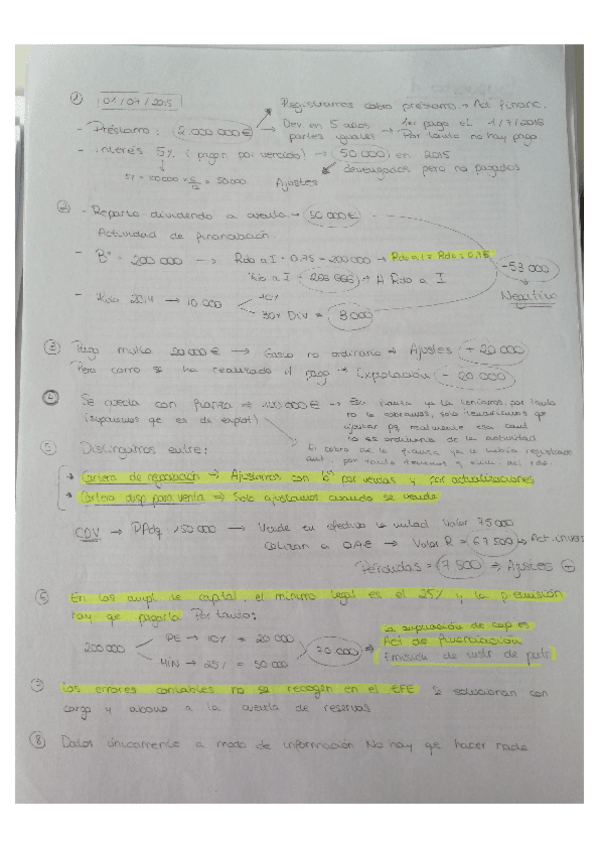 ① 01/07/2015 Registramos cobro préstamo → Act financ.
- Préstamo: 2.000.000€ → Dev en 5 años partes iguales → 1er pago el 1/7/2016 Por tanto no hay pago
- interés 5% ( pagan por vencido) → 50.000 en 2015
= 50000 Ajustes devengados pero no pagados
② - Reparto dividendo a cuenta → 50 000€
Actividad de financiación.
- Bº = 200 000 → Rdo a I · 0.75 = 200000 → Rdo a I = Rdo = 0.75
Rdo a I = 266 666 → A Rdo a I
-53 000
Negativo
- Rdo 2014 → 10.000 10%
30% Div = 3 000
③ Pago multa 20 000 € → Gasto no ordinario → Ajustes + 20 000
Pero como se ha realizado el pago → Explotación - 20.000
④ Se cuenta con fianza → 120 000€ → Esa fianza ya la teníamos, por tanto
(suponemos que es de explot) no la cobramos, solo tendríamos que
ajustar pq realmente esa cant
no es ordinaria de la actividad
El cobro de la fianza ya se había registrado
ant, por tanto
⑤ Distinguimos entre:
• Cartera de negociación → Ajustamos con bº por ventas y por actualizaciones
• Cartera disp para venta → Solo ajustamos cuando se vende
CDV → PAdq 150 000 → Vende en efectivo la mitad Valor 75000
Cotizan a → Valor R = 67 500 → Act. invers
Pérdidas = (7 500) → Ajustes ⊕
⑥ En las ampl. de capital, el mínimo legal es el 25% y la p. emisión
hay que pagarla Por tanto:
200 000 PE → 10% = 20 000
MIN → 25% = 50 000
70 000 → La ampliación de cap es
Act de financiación
Emisión de instr de patr
⑦ Los errores contables no se recogen en el EFE Se solucionan con
cargo y abono a la cuenta de reservas
⑧ Datos únicamente a modo de información No hay que hacer nada